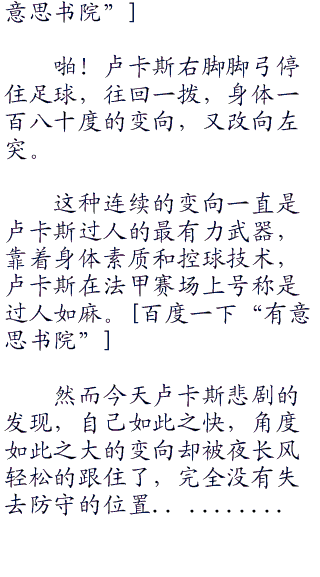 意思书院”]
啪！卢卡斯右脚脚弓停
住足球，往回一拨，身体一
百八十度的变向，又改向左
突。
这种连续的变向一直是
卢卡斯过人的最有力武器，
靠着身体素质和控球技术，
卢卡斯在法甲赛场上号称是
过人如麻。[百度一下“有意
思书院”]
然而今天卢卡斯悲剧的
发现，自己如此之快，角度
如此之大的变向却被夜长风
轻松的跟住了，完全没有失
去防守的位置．．．．．．．．．．